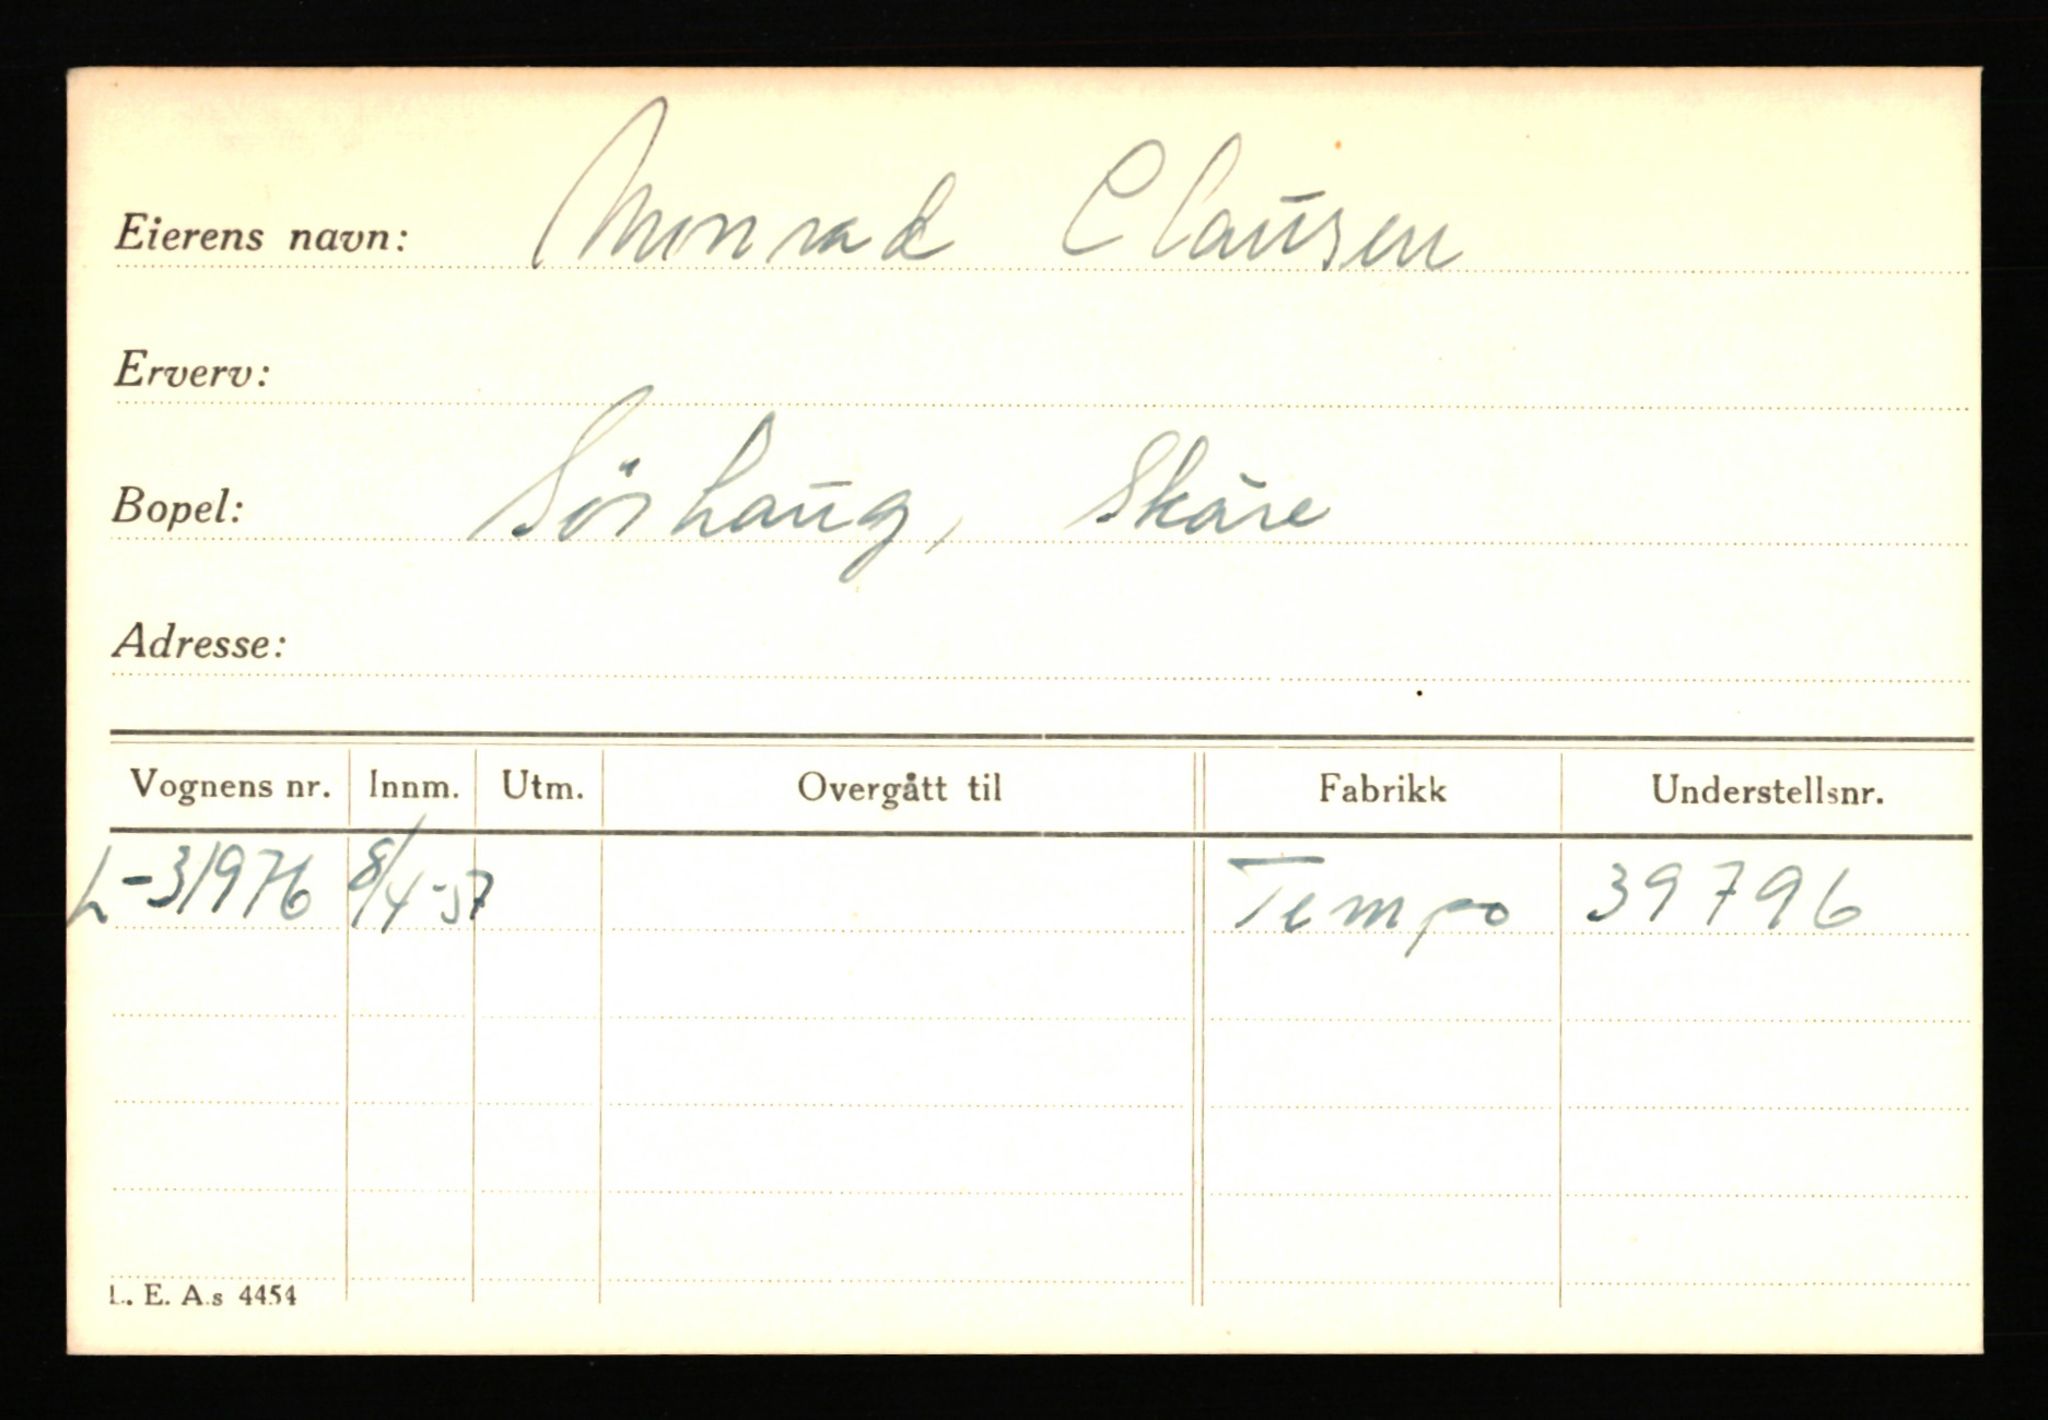 Eierens navn: Monrad Clausen
Erverv:
Bopel: Sörhaug, Skåre
Adresse:
Vognens nr. Innm. Utm. Overgått til Fabrikk Understellsnr.
L-31976 8/4-57 Tempo 39796
L. E. A.s 4454